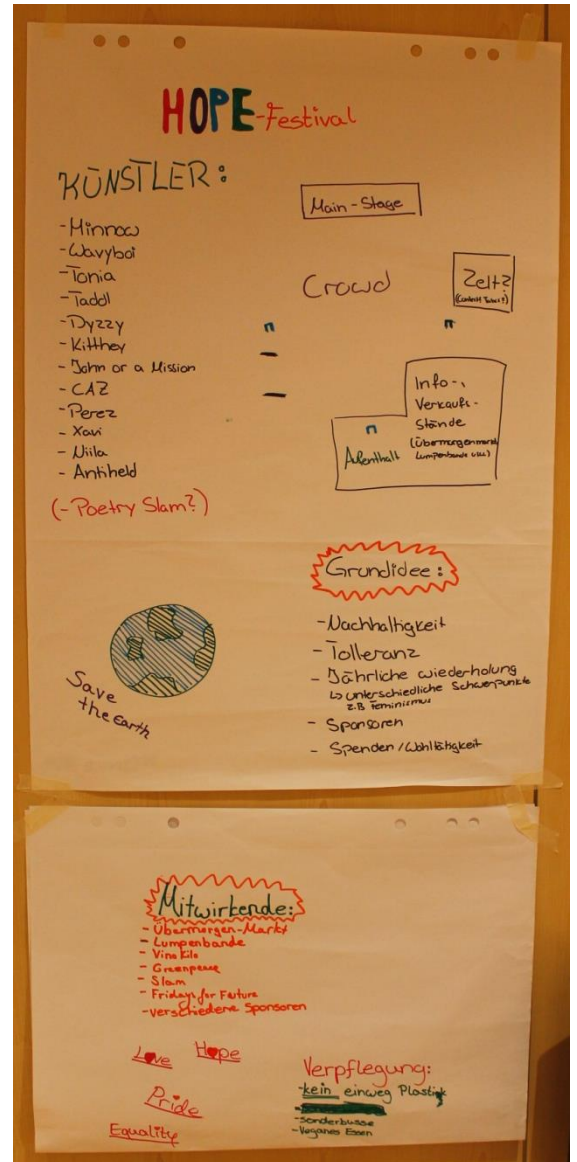 HOPE-Festival
KÜNSTLER:
- Minnow
- Wavyboi
- Tonia
- Taddl
- Dyzzy
- Kitthey
- John or a Mission
- CAZ
- Perez
- Xavi
- Niila
- Antiheld
(- Poetry Slam?)
Main-Stage
Crowd
Zelt?
Info-,
Verkaufs-
Stände
(Übermorgenmarkt
Lumpenbande usw.)
Aufenthalt
Save
the Earth
Grundidee:
- Nachhaltigkeit
- Tolleranz
- Jährliche wiederholung
↳ unterschiedliche Schwerpunkte
z.B Feminismus
- Sponsoren
- Spenden/Wohltätigkeit
Mitwirkende:
- Übermorgen-Markt
- Lumpenbande
- Vino Kilo
- Greenpeace
- Slam
- Fridays for Furture
- verschiedene Sponsoren
Love
Hope
Pride
Equality
Verpflegung:
- kein einweg Plastik
- Sonderbusse
- Veganes Essen